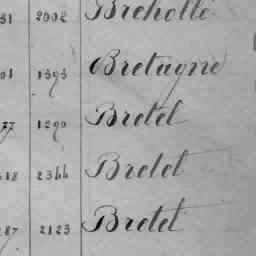 31 2002 Breholle
01 1393 Bretagne
77 1290 Bretel
18 2344 Bretet
87 2123 Bretet